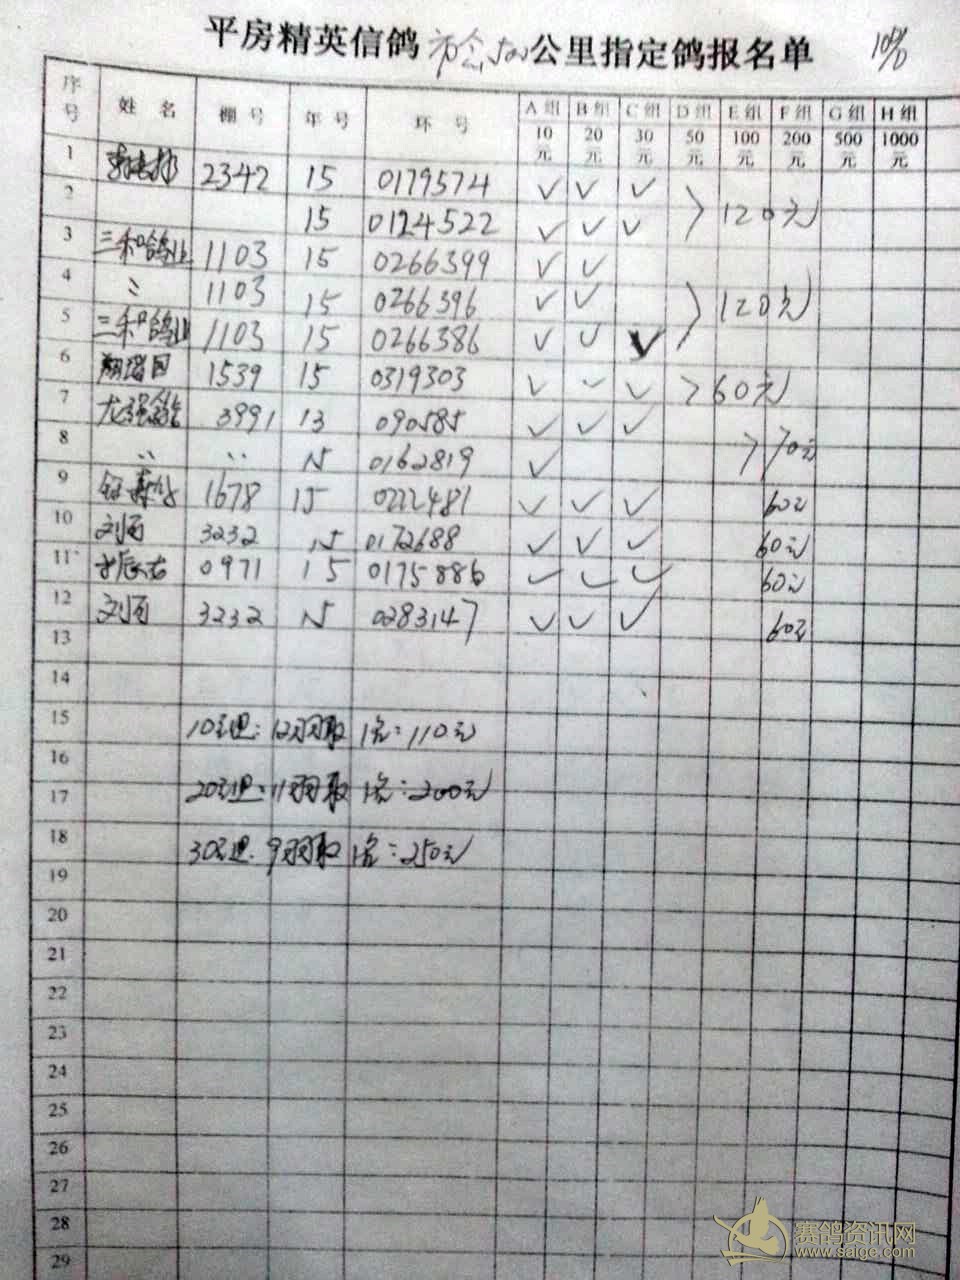 平房精英信鸽市会500公里指定鸽报名单 10%
序号 姓名 棚号 年号 环号 A组10元 B组20元 C组30元 D组50元 E组100元 F组200元 G组500元 H组1000元
1 2342 15 0179574 ✓ ✓ ✓
2 15 0124522 ✓ ✓ ✓ > 120元
3 三和鸽业 1103 15 0266399 ✓ ✓
4 〃 1103 15 0266396 ✓ ✓ > 120元
5 三和鸽业 1103 15 0266386 ✓ ✓ ✓
6 1539 15 0319303 ✓ ✓ ✓ > 60元
7 3991 13 090585 ✓ ✓ ✓
8 〃 〃 15 0162819 ✓ > 70元
9 1678 15 0222481 ✓ ✓ ✓ 60元
10 3232 15 0172688 ✓ ✓ ✓ 60元
11 0971 15 0175886 ✓ ✓ ✓ 60元
12 3232 15 0283147 ✓ ✓ ✓ 60元
13
14
15 10元组: 12羽取1名: 110元
16
17 20元组: 11羽取1名: 200元
18 30元组: 9羽取1名: 250元
19
20
21
22
23
24
25
26
27
28
29
赛鸽资讯网
www.saige.com